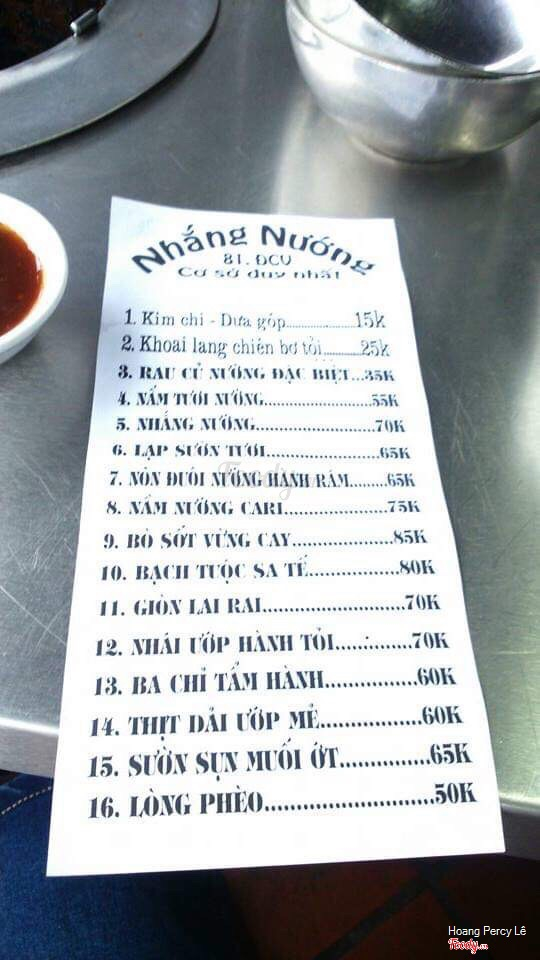 Nhắng Nướng
81. ĐCV
Cơ sở duy nhất
1. Kim chi - Dưa góp...............15k
2. Khoai lang chiên bơ tỏi..........25k
3. RAU CỦ NƯỚNG ĐẶC BIỆT...35K
4. NẤM TƯƠI NƯỚNG..................55K
5. NHẮNG NƯỚNG....................70K
6. LẠP SƯỜN TƯƠI...................65K
7. NÒN ĐUÔI NƯỚNG HÀNH RĂM........65K
8. NẦM NƯỚNG CARI................75K
9. BÒ SỐT VỪNG CAY................85K
10. BẠCH TUỘC SA TẾ..............80K
11. GIÒN LAI RAI....................70K
12. NHÁI ƯỚP HÀNH TỎI............70K
13. BA CHỈ TẨM HÀNH.............60K
14. THỊT DẢI ƯỚP MẺ...............60K
15. SƯỜN SỤN MUỐI ỚT.............65K
16. LÒNG PHÈO.........................50K
Foody
Hoang Percy Lê
Foody.vn